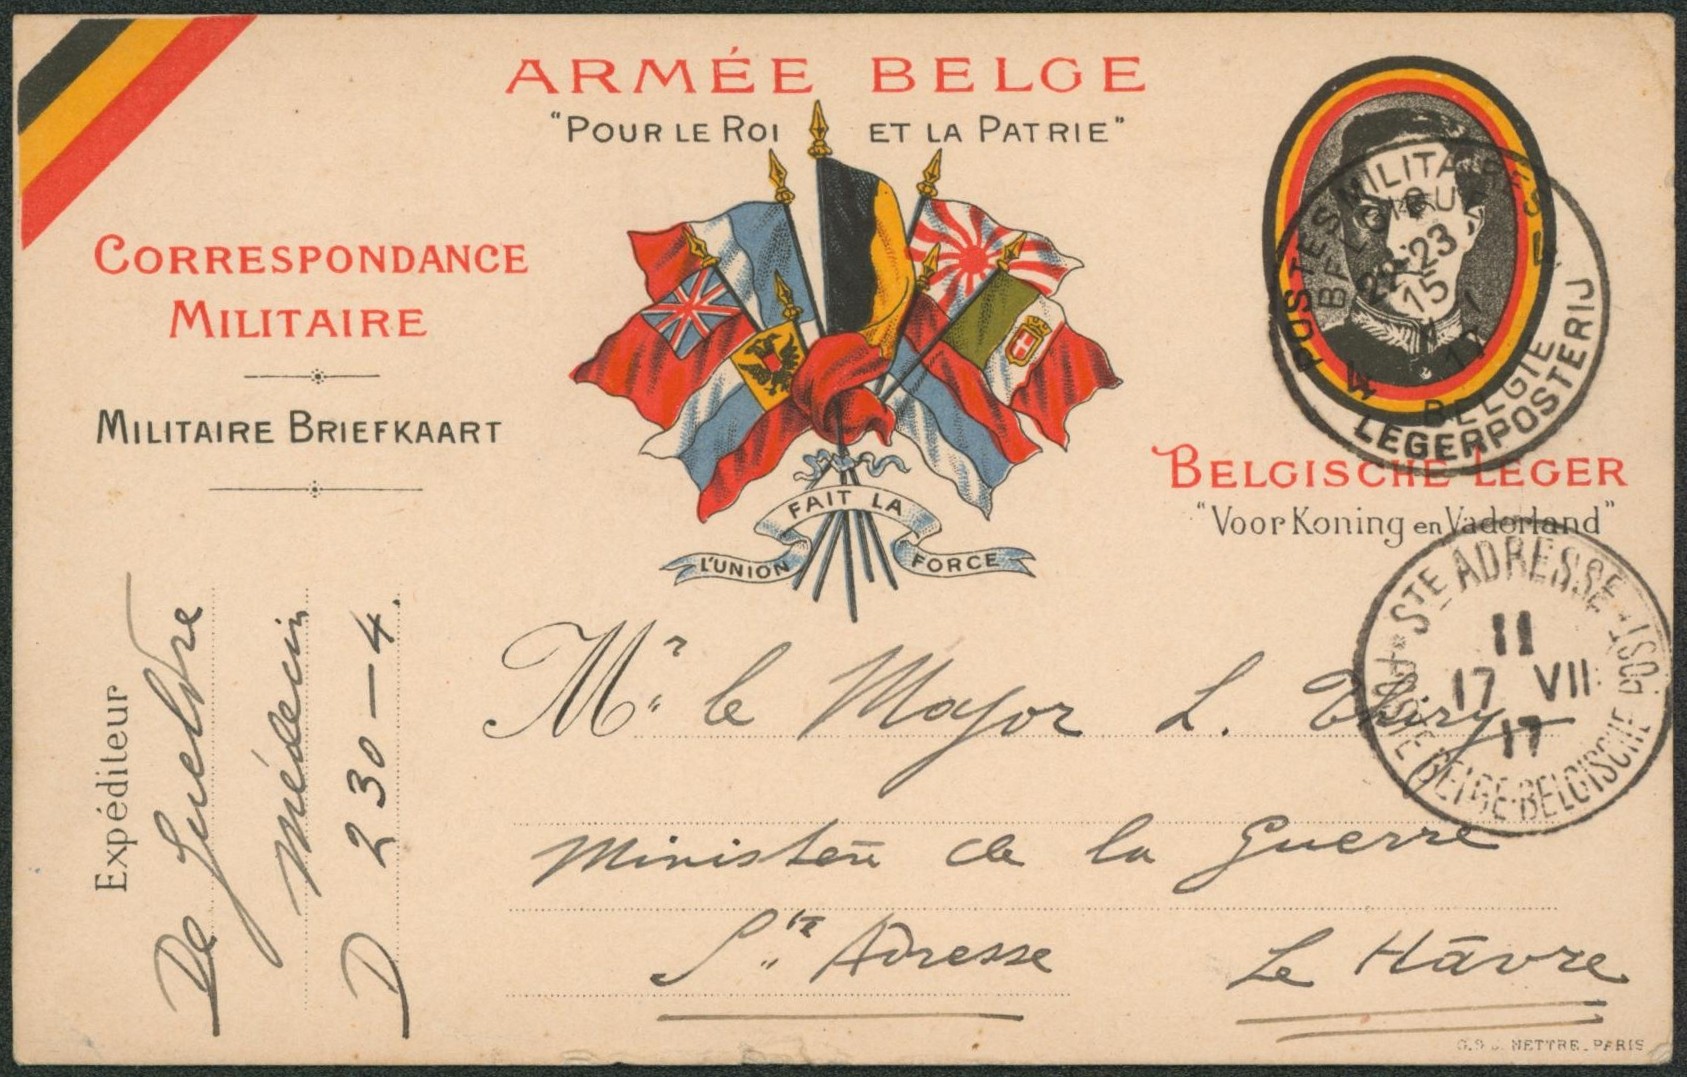 ARMÉE BELGE
"POUR LE ROI ET LA PATRIE"
CORRESPONDANCE
MILITAIRE
MILITAIRE BRIEFKAART
POSTES MILITAIRES
BELGIQUE
22-23
15
17
4
BELGIE
LEGERPOSTERIJ
BELGISCHE LEGER
"Voor Koning en Vaderland"
L'UNION FAIT LA FORCE
STE ADRESSE
11
17 VII
17
POSTE BELGE-BELGISCHE POST
Expéditeur
De
Médecin
D 230-4.
Mr. le Major L. Thiry
Ministère de la Guerre
Ste Adresse Le Hâvre
NETTRE. PARIS